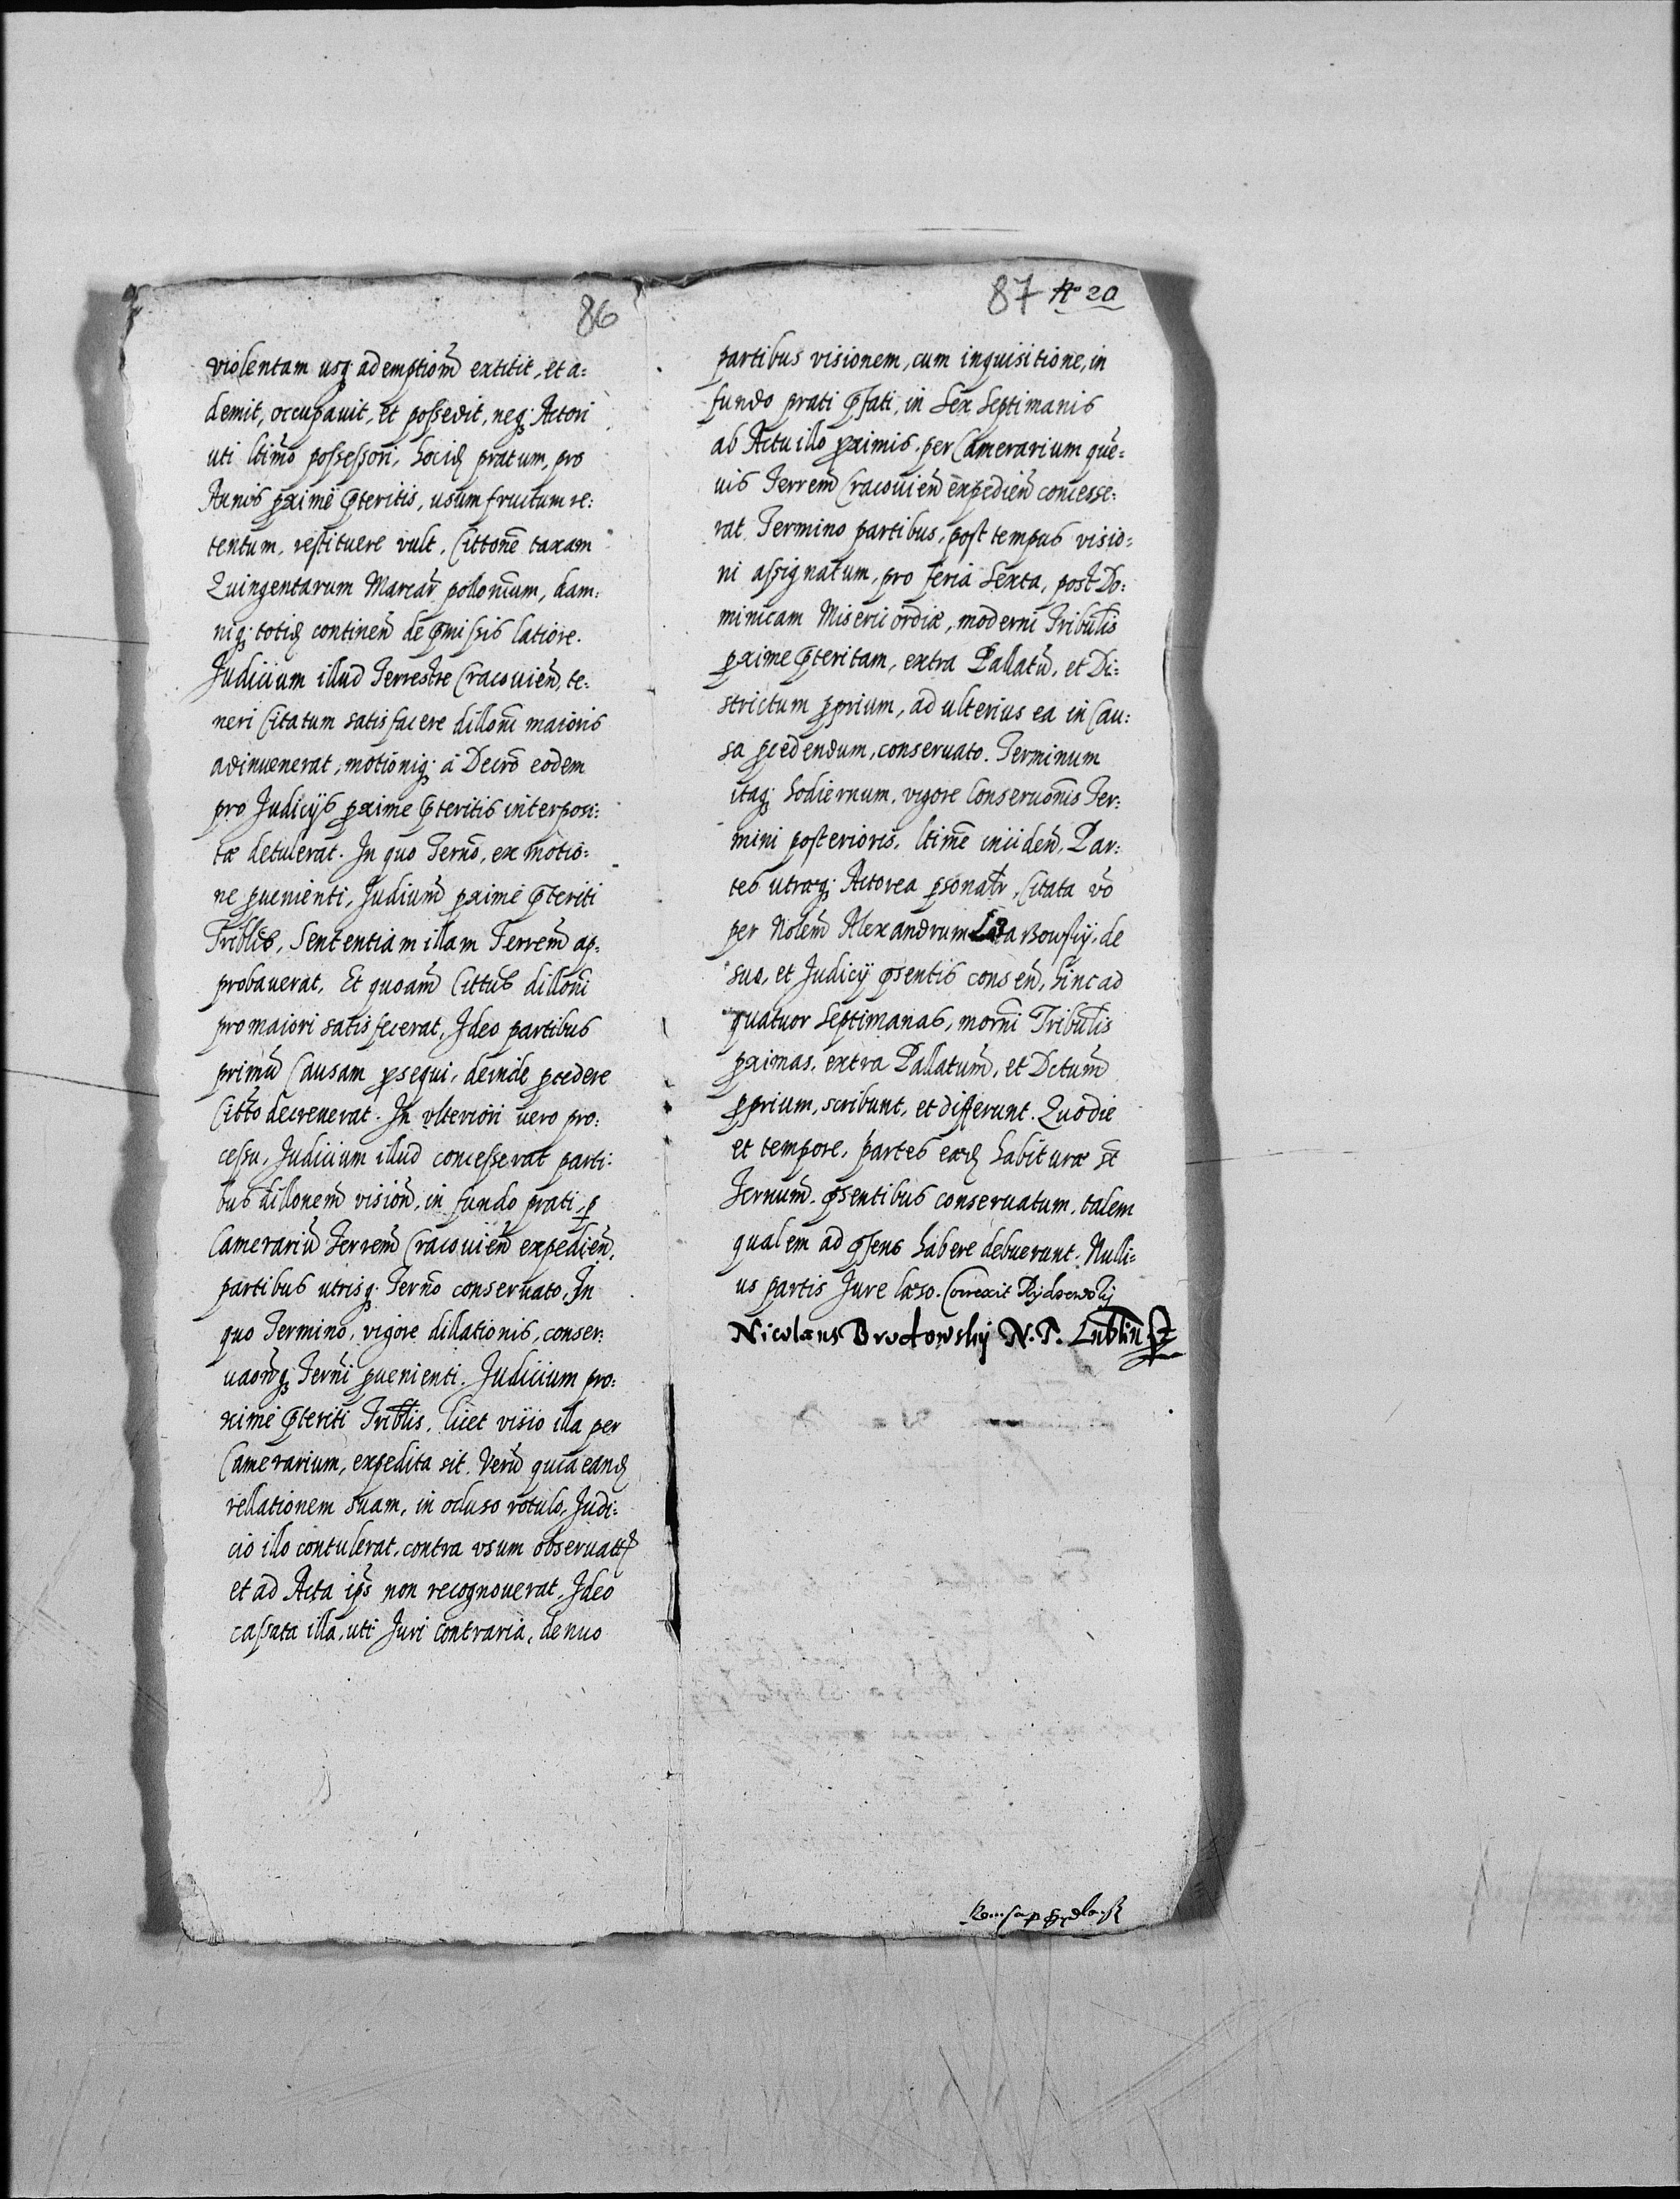 86
violentam usq; ademptiom̃ extitit, et a=
demit, occupauit, et possedit, neq; Actori
uti ltimo possessori, hociꝗ pratum, pro
Annis pximè pteritis, usum fructum re:
tentum, restituere vult, Cittonẽ taxam
Quingentarum Marcar̃ pollonicum, dam:
niq; totiꝗ continen̄ de pmissis latiore.
Judicium illud Terrestre Cracouien̄, te:
neri Citatum satisfacere dillonĩ maioris
adinuenerat, motioniq; à Decro eodem
pro Judicijs pxime pteritis interposi:
tæ detulerat. In quo Terno, ex motio:
ne puenienti, Judicium pximè pteriti
Triblis, Sententiam illam Terrem̃ ap:
probauerat, Et quoam̃ Cittus dillonĩ
pro maiori satisfecerat, Ideo partibus
primũ Causam psequi, deinde pcedere
Citto decreuerat. In vlteriori uero pro:
cessu, Judicium illud concesserat parti:
bus dillonem̃ vision̄, in fundo prati, p
Camerariũ Terrem̃ Cracouien̄ expedien̄,
partibus utrisq; Terno conseruato, In
quo Termino, vigore dillationis, conser:
uaonq; Terni puenienti. Judicium pro:
ximè pteriti Triblis, licet visio illa per
Camerarium, expedita sit. Verũ quia eanꝗ
rellationem suam, in ocluso rotulo, Judi:
cio illo contulerat, contra vsum obseruatꝗ
et ad Acta ips non recognouerat, Ideo
cassata illa, uti Juri contraria, denuo
87 No 20
partibus visionem, cum inquisitione, in
fundo prati pfati, in Sex Septimanis
ab Actu illo pximis, per Camerarium que:
uis Terrem̃ Cracouien̄ expedien̄ concesse:
rat Termino partibus, post tempus visio:
ni assignatum, pro feria Sexta, post Do:
minicam Misericordiæ, moderni Tribulis
pxime pteritam, extra Pallatũ, et Di:
strictum pprium, ad ulterius ea in Cau:
sa pcedendum, conseruato. Terminum
itaq; hodiernum, vigore Conseruonis Ter:
mini posterioris, ltimè inciden̄, Par:
tes utræq; Actorea psonatr, Citata vo
per Nolem̃ Alexandrum
suo, et Judicij psentis consen̄, hinc ad
quatuor Septimanas, morni Tribulis
pximas, extra Pallatum̃, et Dctum̃
pprium, scribunt, et differunt. Quo die
et tempore, partes eæꝗ habituræ st
Ternum̃ psentibus conseruatum, talem
qualem ad psens habere debuerunt. Nulli:
us partis Jure læso. Correxit
Nicolaus Brodowskij N.T. Lublin